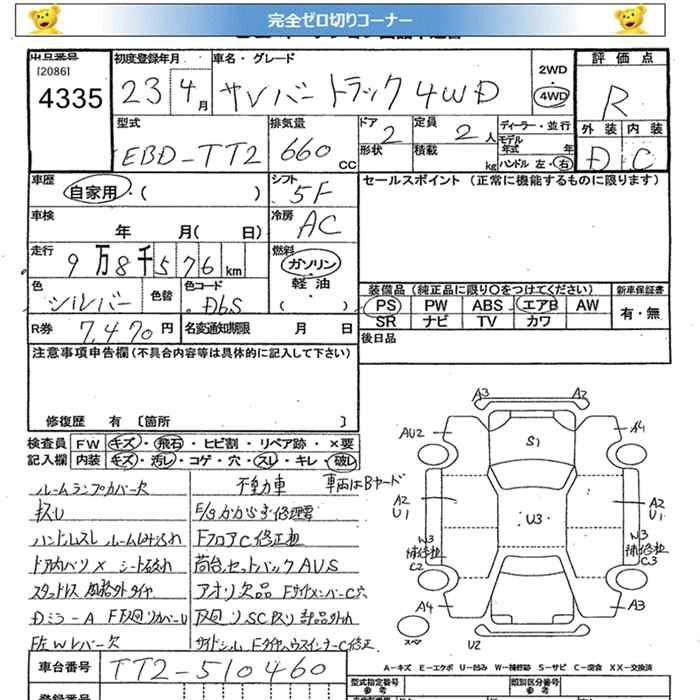 完全ゼロ切りコーナー
出品番号 初度登録年月 車名・グレード 評価点
[2086]
4335 23 4月 サンバートラック 4WD 2WD 4WD R
型式 排気量 ドア 2 定員 2人 ディーラー・並行 外装 内装
EBD-TT2 660 CC 形状 積載 kg モデル年式 年 ハンドル 左・右 D C
車歴 自家用・( ) シフト 5F セールスポイント (正常に機能するものに限ります)
車検 年 月( 日) 冷房 AC
走行 9万8千576km 燃料 ガソリン
軽油
( )
色 シルバー 色替 色コード D6S 装備品 (純正品に限り○をつけてください) 新車保証書
PS PW ABS エアB AW 有・無
R券 7,470円 名変通知期限 月 日 SR ナビ TV カワ
注意事項申告欄(不具合内容等は具体的に記入して下さい) 後日品
修復歴 有 [箇所 ]
検査員 FW キズ・飛石・ヒビ割・リペア跡・×要
記入欄 内装 キズ・汚レ・コゲ・穴・スレ・キレ・破レ
ルームランプカバー欠 不動車 車両はBヤード
キズU E/gかからず 要修理
ハンドルスレ ルーム内汚れ FフロアC修正粗
ドア内バリX シート破れ 荷台セットバックAUS
スタッドレス 規格外タイヤ アオリ欠品 FサイドメンバーC穴
DミラーA
F左Wレバー欠 サイドシル FタイヤハウスインナーC修正
A3 A2
AU2 A4
S1
A2 U1 U3 A2 U1
W3 補修粗 C2 W3 補修粗 C3
A4 A3
スペア U2
車台番号 TT2-510460
A-キズ E-エクボ U-凹み W-補修跡 S-サビ C-腐食 XX-交換済
型式指定番号 参考 類別区分番号 参考
登録番号